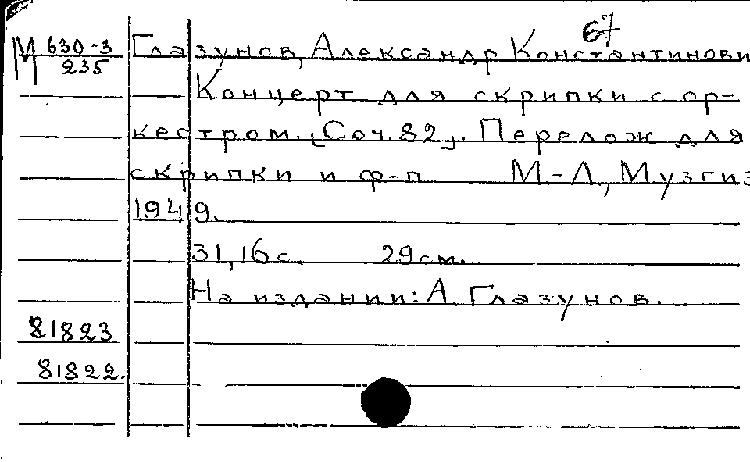 67
М 630-3 Глазунов, Александр Константинови
235
Концерт для скрипки с ор-
кестром. [Соч. 82]. Перелож для
скрипки и ф-п М-Л, Музгиз
1949.
31, 16 с. 29 см.
На издании: А Глазунов.
81823
81822.